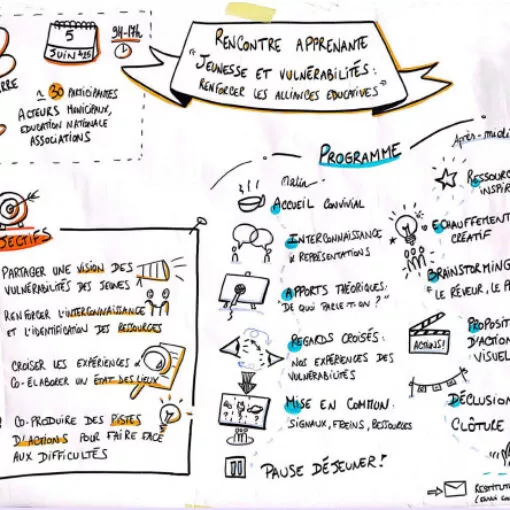 RENCONTRE APPRENANTE
"JEUNESSE ET VULNÉRABILITÉS :
RENFORCER LES ALLIANCES ÉDUCATIVES"
5
JUIN
9H-17H
30 PARTICIPANTES
ACTEURS MUNICIPAUX,
EDUCATION NATIONALE
ASSOCIATIONS
JECTIFS
PARTAGER UNE VISION DES
VULNÉRABILITÉS DES JEUNES
RENFORCER L'INTERCONNAISSANCE
ET L'IDENTIFICATION DES RESSOURCES
CROISER LES EXPÉRIENCES &
CO-ÉLABORER UN ÉTAT DES LIEUX
CO-PRODUIRE DES PISTES
D'ACTIONS POUR FAIRE FACE
AUX DIFFICULTÉS
PROGRAMME
Matin
ACCUEIL CONVIVIAL
INTERCONNAISSANCE
& REPRÉSENTATIONS
APPORTS THÉORIQUES:
"DE QUOI PARLE-T-ON ?"
REGARDS CROISÉS:
NOS EXPÉRIENCES DES
VULNÉRABILITÉS
MISE EN COMMUN:
SIGNAUX, FREINS, RESSOURCES
PAUSE DÉJEUNER!
Après-midi
RESSOURC
INSPIR
ECHAUFFEMENT
CRÉATIF
BRAINSTORMING
LE RÊVEUR, LE
ACTIONS!
PROPOSIT
D'ACTION
VISUEL
DÉCLUSION
CLÔTURE
RESTITUT